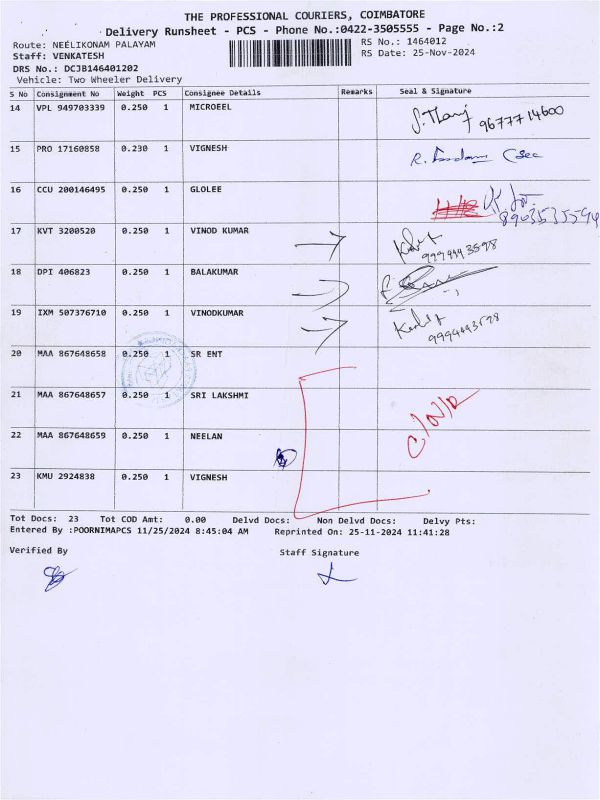 THE PROFESSIONAL COURIERS, COIMBATORE
Delivery Runsheet - PCS - Phone No.:0422-3505555 - Page No.:2
Route: NEELIKONAM PALAYAM RS No.: 1464012
Staff: VENKATESH RS Date: 25-Nov-2024
DRS No.: DCJB146401202
Vehicle: Two Wheeler Delivery
S No Consignment No Weight PCS Consignee Details Remarks Seal & Signature
14 VPL 949703339 0.250 1 MICROEEL 9677714600
15 PRO 17160858 0.230 1 VIGNESH
16 CCU 200146495 0.250 1 GLOLEE
8903535594
17 KVT 3200520 0.250 1 VINOD KUMAR
9994993598
18 DPI 406823 0.250 1 BALAKUMAR
19 IXM 507376710 0.250 1 VINODKUMAR
20 MAA 867648658 0.250 1 SR ENT
21 MAA 867648657 0.250 1 SRI LAKSHMI
22 MAA 867648659 0.250 1 NEELAN
23 KMU 2924838 0.250 1 VIGNESH
Tot Docs: 23 Tot COD Amt: 0.00 Delvd Docs: Non Delvd Docs: Delvy Pts:
Entered By :POORNIMAPCS 11/25/2024 8:45:04 AM Reprinted On: 25-11-2024 11:41:28
Verified By Staff Signature